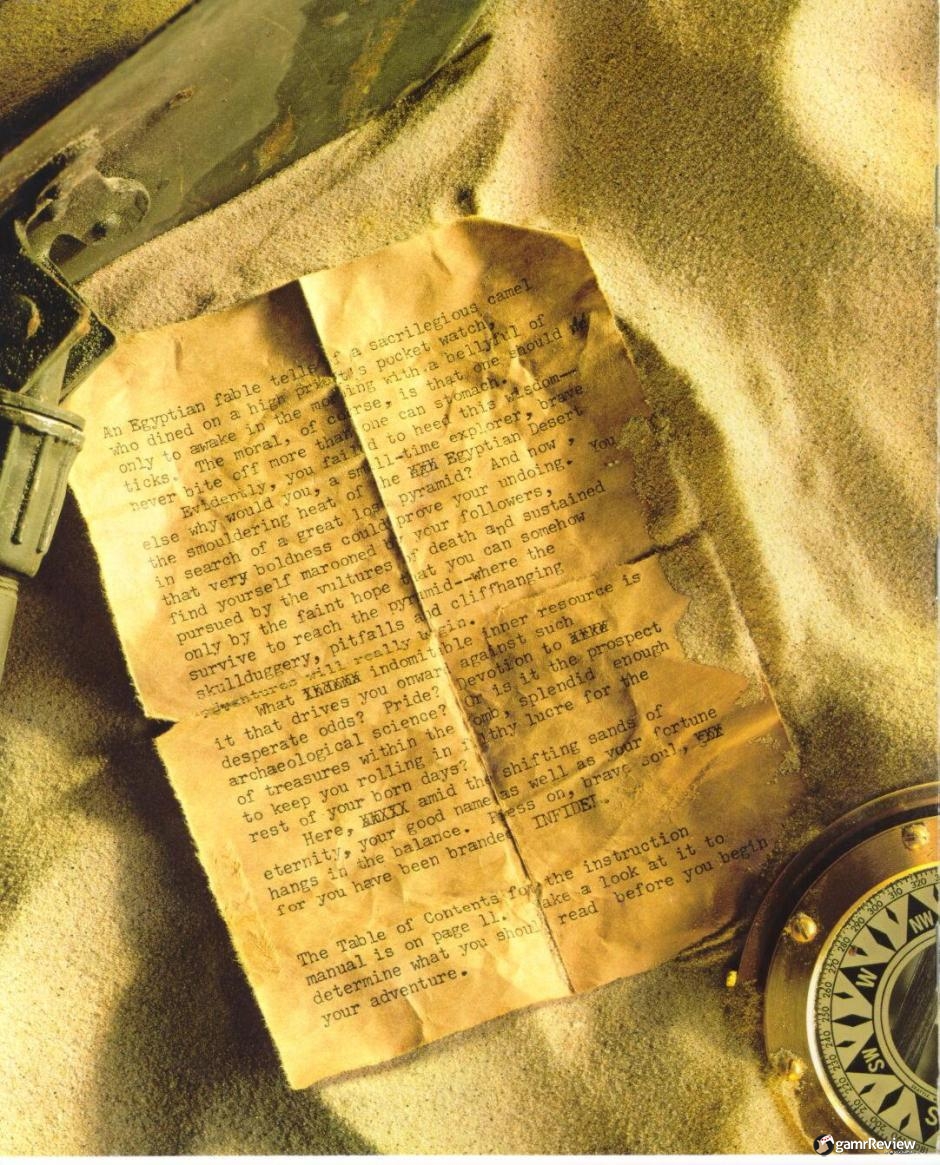 An Egyptian fable tells f a sacrilegious camel
who dined on a high pri t's pocket watch,
only to awake in the mo ing with a bellyful of
ticks. The moral, of co rse, is that one should
never bite off more than one can stomach.
Evidently, you fail d to heed this wisdom--
else why would you, a sm ll-time explorer, brave
the smouldering heat of he Egyptian Desert
in search of a great los pyramid? And now, you
that very boldness could prove your undoing.
find yourself marooned your followers,
pursued by the vultures f death and sustained
only by the faint hope that you can somehow
survive to reach the pyramid--where the
skullduggery, pitfalls and cliffhanging
adventures will really in.
What XXXXXX indomitable inner resource is
it that drives you onwar against such
desperate odds? Pride? Devotion to XXXX
archaeological science? Or is it the prospect
of treasures within the omb, splendid enough
to keep you rolling in lthy lucre for the
rest of your born days?
Here, XXXXX amid the shifting sands of
eternity, your good name as well as your fortune
hangs in the balance. Press on, brave soul, XXX
for you have been brande INFIDEL.
The Table of Contents for the instruction
manual is on page 11. ake a look at it to
determine what you shoul read before you begin
your adventure.
NW
W
SW
S
320
310
300
290
280
240
230
220
210
gamrReview